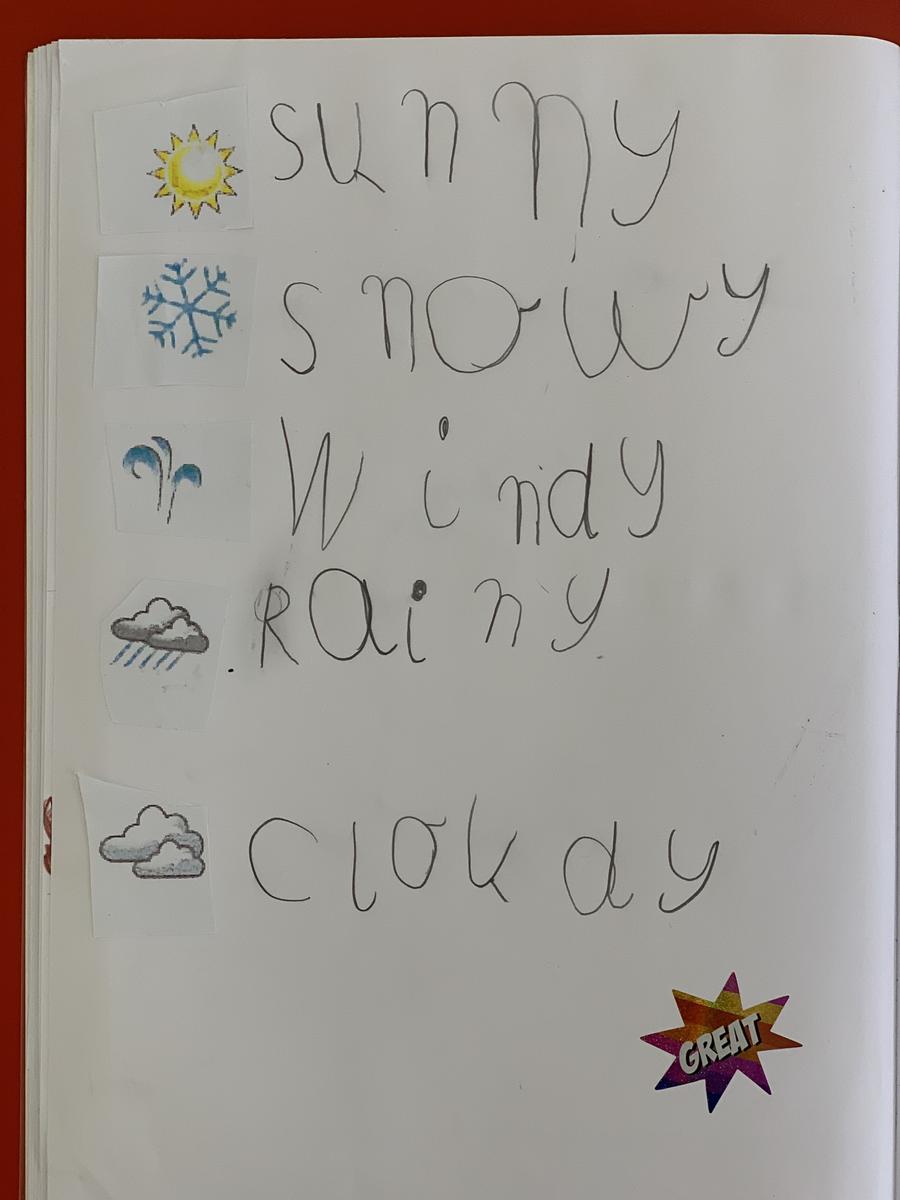 sunny
snowy
Windy
Rainy
Cloudy
GREAT